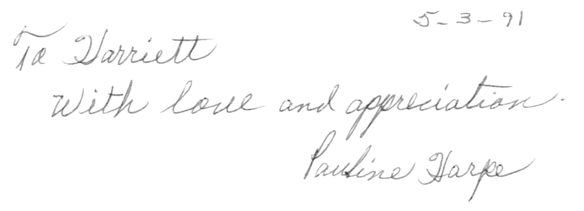 5-3-91
To Harriett
With love and appreciation.
Pauline Harpe